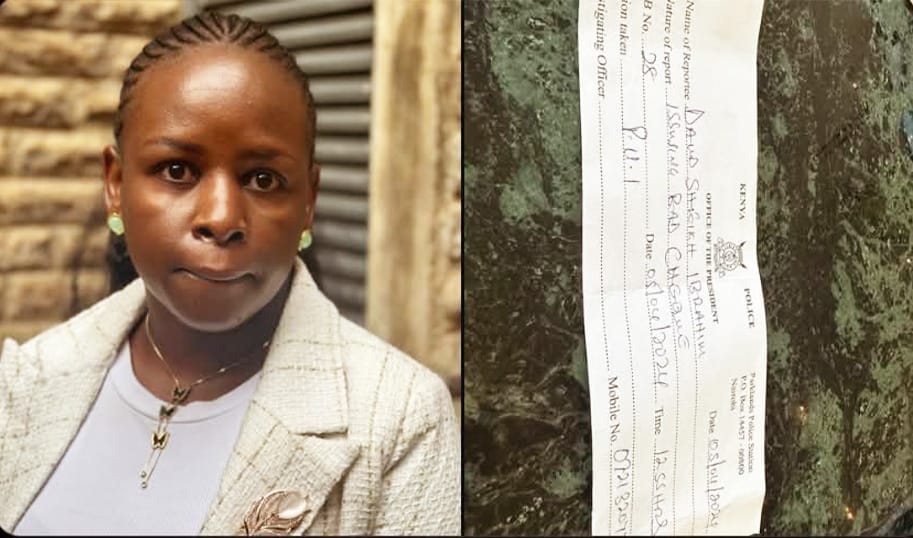 KENYA POLICE
OFFICE OF THE PRESIDENT
Parklands Police Station
P.O. Box 14457 - 00800
Nairobi
Date 05/04/202
Name of Reportee DAUD SHEIKH IBRAHIM
ature of report ISSUING BAD CHEQUE
B No. 28 Date 05/04/2024 Time 12.55HRS
ion taken P.U.I
stigating Officer Mobile No. 0721820